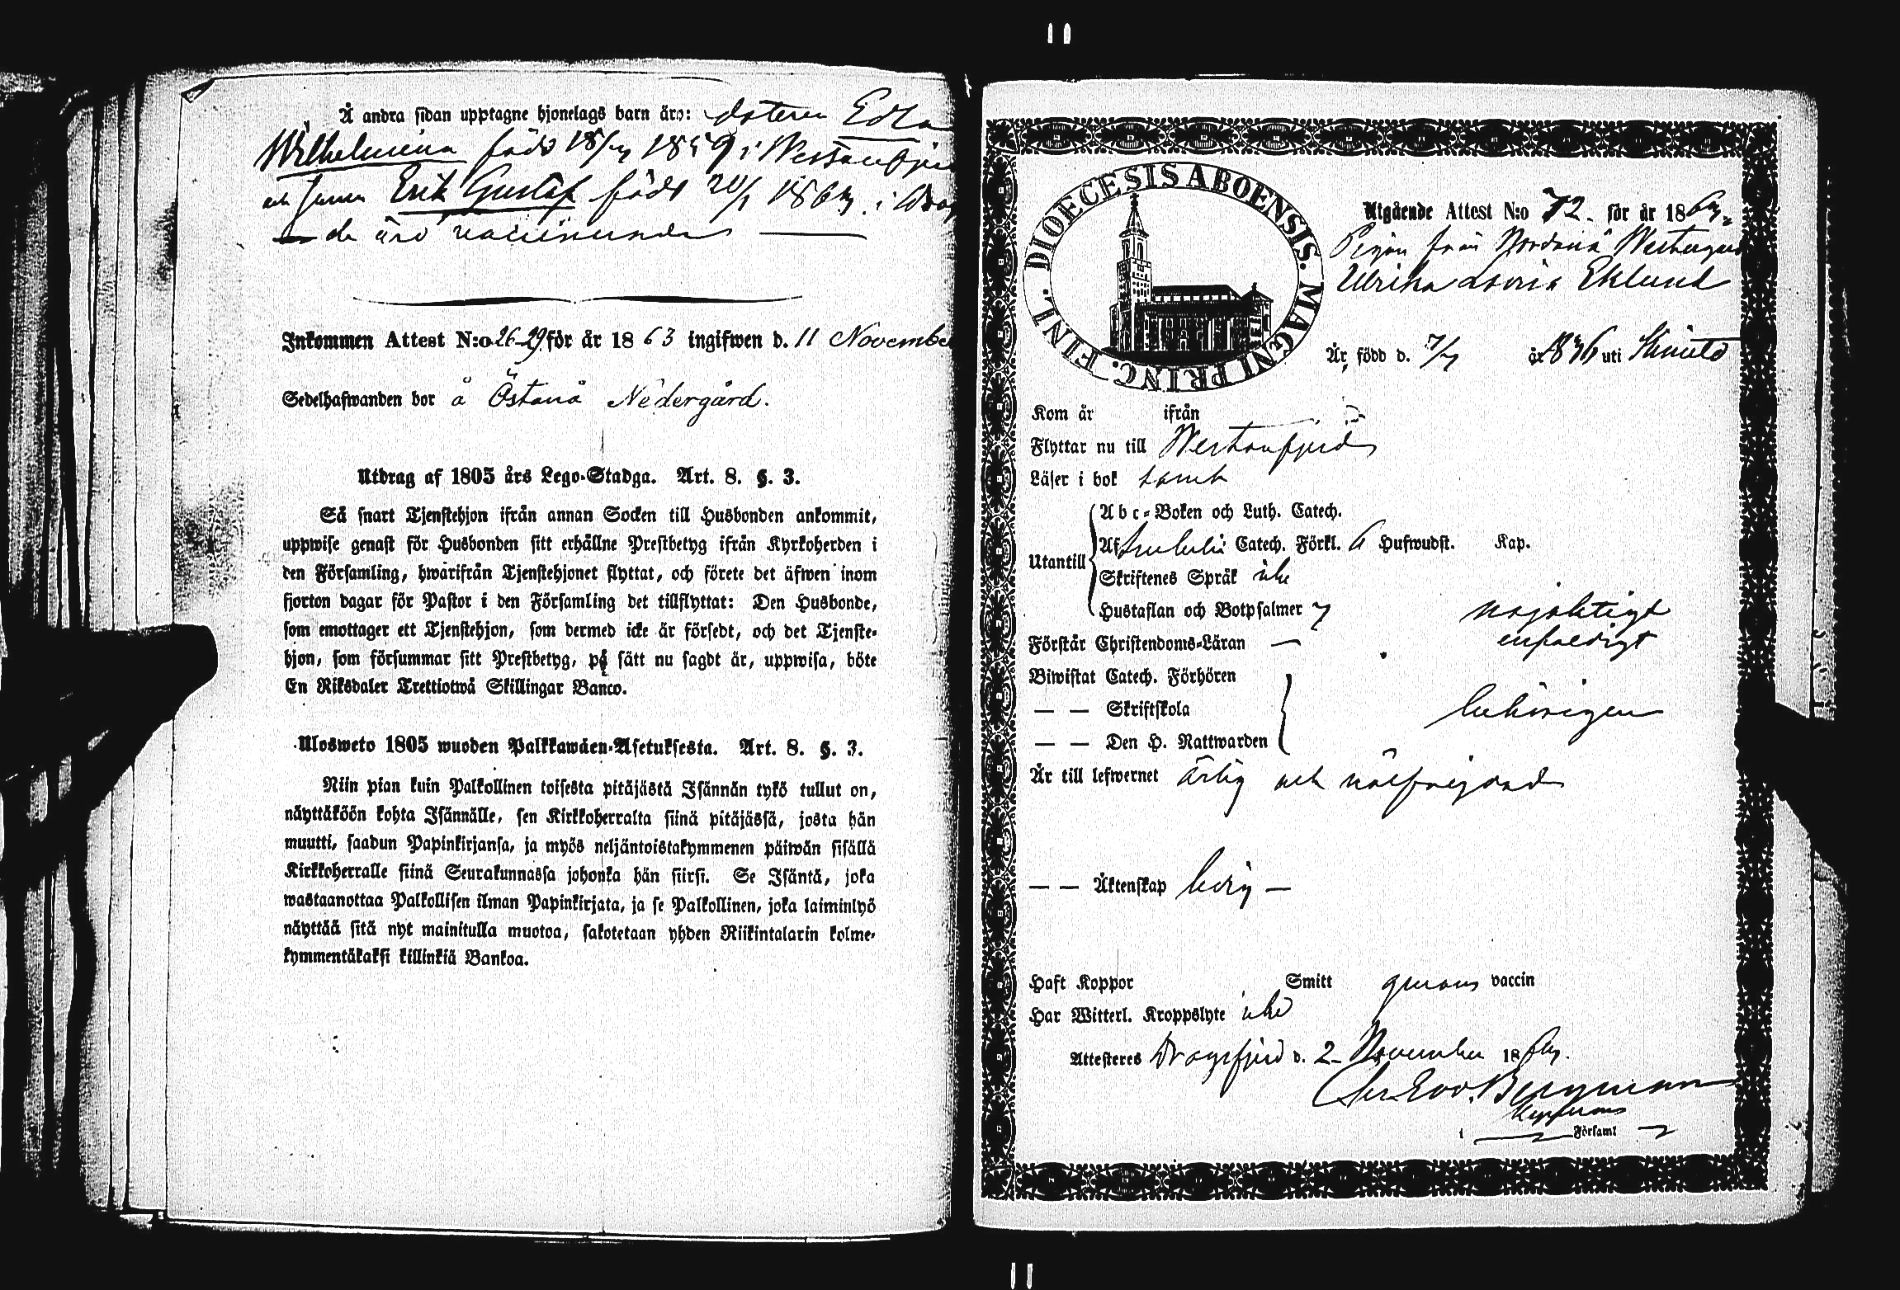 Å andra sidan upptagne hjonelags barn äro: dotteren Edla
Wilhelmina född 18/ 1859 i Westanfjerd
och sonen Erik Gustaf född 20/1 186 i
de äro vaccinerade
Inkommen Attest N:o 26-29 för år 1863 ingifwen d. 11 November
Sedelhafwanden bor å Östanå Nedergård.
Utdrag af 1805 års Lego-Stadga. Art. 8. §. 3.
Så snart Tjenstehjon ifrån annan Socken till Husbonden ankommit,
uppwise genast för Husbonden sitt erhållne Prestbetyg ifrån Kyrkoherden i
den Församling, hwarifrån Tjenstehjonet flyttat, och förete det äfwen inom
fjorton dagar för Pastor i den Församling det tillflyttat: Den Husbonde,
som emottager ett Tjenstehjon, som dermed icke är försedt, och det Tjenste-
hjon, som försummar sitt Prestbetyg, på sätt nu sagdt är, uppwisa, böte
En Riksdaler Trettiotwå Skillingar Banco.
Ulosweto 1805 wuoden Palkkawäen-Asetuksesta. Art. 8. §. 3.
Niin pian kuin Palkollinen toisesta pitäjästä Isännän tykö tullut on,
näyttäköön kohta Isännälle, sen Kirkkoherralta siinä pitäjässä, josta hän
muutti, saadun Papinkirjansa, ja myös neljäntoistakymmenen päiwän sisällä
Kirkkoherralle siinä Seurakunnassa johonka hän siirsi. Se Isäntä, joka
wastaanottaa Palkollisen ilman Papinkirjata, ja se Palkollinen, joka laiminlyö
näyttää sitä nyt mainitulla muotoa, sakotetaan yhden Riikintalarin kolme-
kymmentäkaksi killinkiä Bankoa.
DIOECESIS ABOENSIS. MAGNI PRINC. FINL.
Utgående Attest N:o 72. för år 1863.
Pigan från Nordanå Westergård
Ulrika Lovisa Eklund
Är född d. 7/7 år 1836 uti Kimito
Kom år ifrån
Flyttar nu till Westanfjerd
Läser i bok samt
Utantill
Abc-Boken och Luth. Catech.
Af Catech. Förkl. 6 Hufwudst. Kap.
Skriftenes Språk icke
Hustaflan och Botpsalmer nöjaktigt
Förstår Christendoms-Läran — enfaldigt
Biwistat Catech. Förhören
— — Skriftskola behörigen
— — Den H. Nattwarden
Är till lefwernet ärlig och välfrejdad
— — Äktenskap ledig —
Haft Koppor Smitt genom vaccin
Har Witterl. Kroppslyte icke
Attesteres Dragsfjerd d. 2 November 1863.
Chr. Edv. Bergman
i Församl